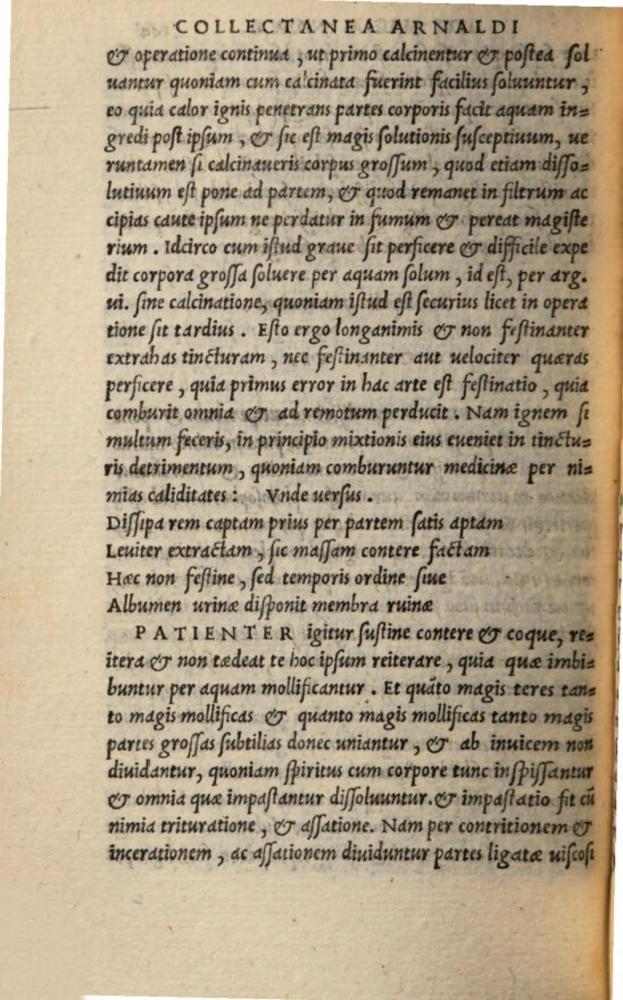 COLLECTANEA ARNALDI
& operatione continua, ut primo calcinentur & postea sol
uantur quoniam cum calcinata fuerint facilius soluuntur,
eo quia calor ignis penetrans partes corporis facit aquam in=
gredi post ipsum, & sic est magis solutionis susceptiuum, ue
runtamen si calcinaueris corpus grossum, quod etiam disso=
lutiuum est pone ad partem, & quod remanet in filtrum ac
cipias caute ipsum ne perdatur in fumum & pereat magiste
rium. Idcirco cum istud graue sit perficere & difficile expe
dit corpora grossa soluere per aquam solum, id est, per arg.
ui. sine calcinatione, quoniam istud est securius licet in opera
tione sit tardius. Esto ergo longanimis & non festinanter
extrahas tincturam, nec festinanter aut uelociter quæras
perficere, quia primus error in hac arte est festinatio, quia
comburit omnia & ad remotum perducit. Nam ignem si
multum feceris, in principio mixtionis eius eueniet in tinctu=
ris detrimentum, quoniam comburuntur medicinæ per ni=
mias caliditates: Vnde uersus.
Dissipa rem captam prius per partem satis aptam
Leuiter extractam, sic massam contere factam
Hæc non festine, sed temporis ordine siue
Albumen urinæ disponit membra ruinæ
PATIENTER igitur sustine contere & coque, re=
itera & non tædeat te hoc ipsum reiterare, quia quæ imbi=
buntur per aquam mollificantur. Et quāto magis teres tan=
to magis mollificas & quanto magis mollificas tanto magis
partes grossas subtilias donec uniantur, & ab inuicem non
diuidantur, quoniam spiritus cum corpore tunc inspissantur
& omnia quæ impastantur dissoluuntur. & impastatio fit cū
nimia trituratione, & assatione. Nam per contritionem &
incerationem, ac assationem diuiduntur partes ligatæ uiscosi